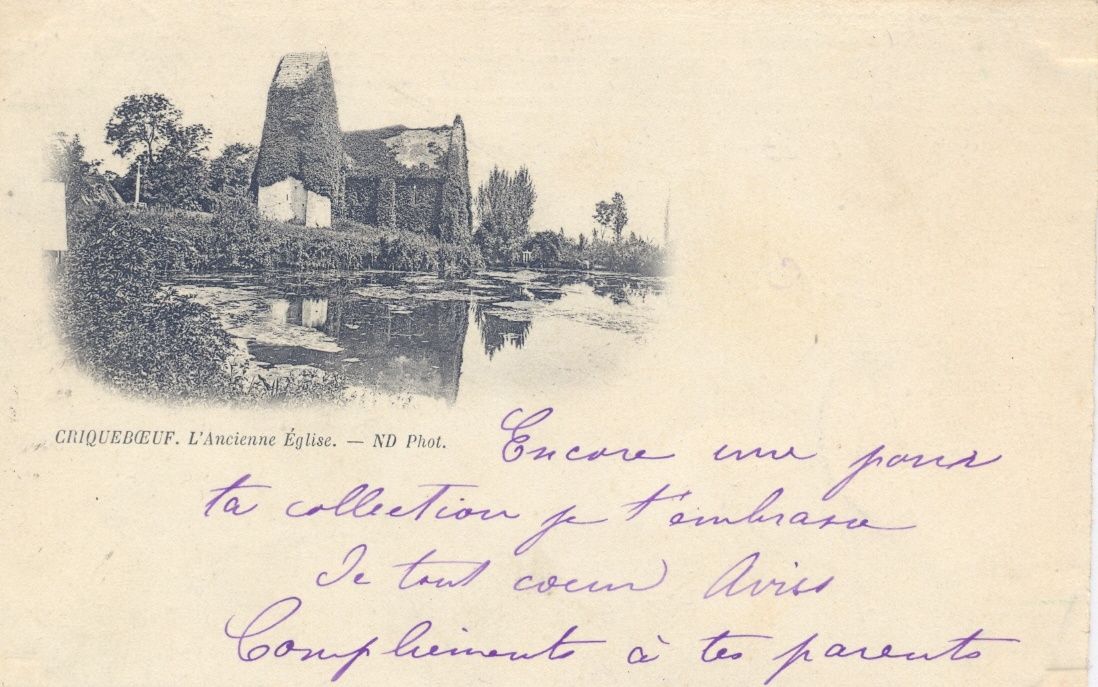 CRIQUEBŒUF. L'Ancienne Église. — ND Phot.
Encore une pour
ta collection je t'embrasse
De tout coeur
Compliments à tes parents